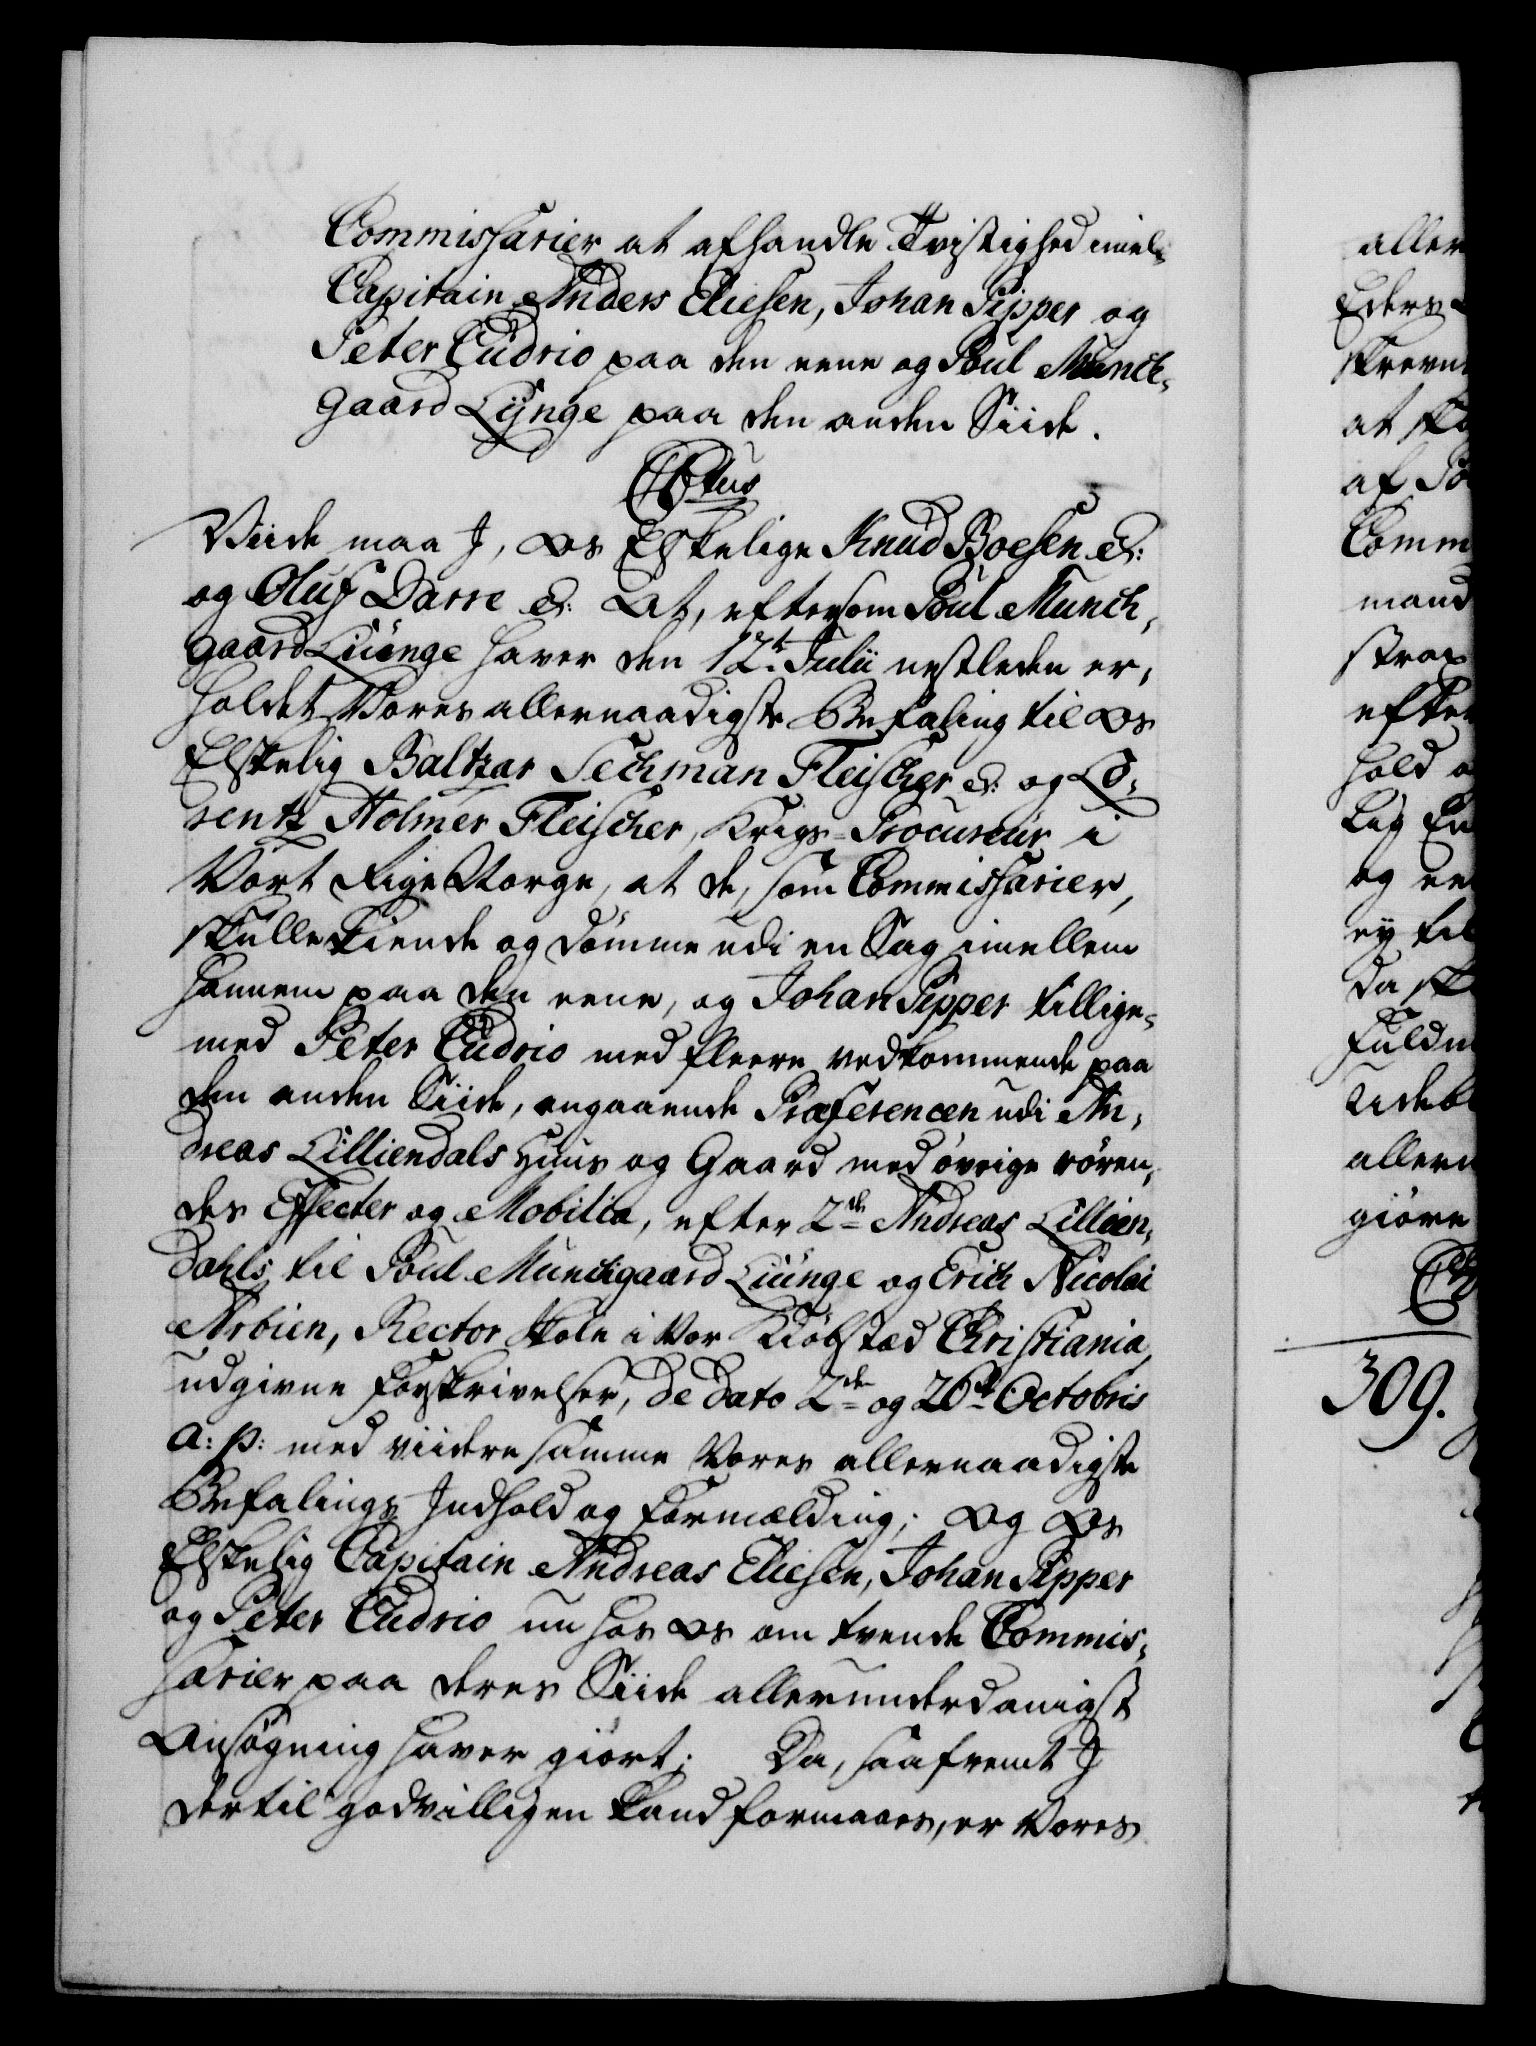 Commissarier at afhandle Tvistighed imel¬
Capitain Anders Eliesen, Johan Pipper og
Peter Cudrio paa den eene og Poul Munck¬
gaard Lynge paa den anden Siide.
CStus
Viide maa J, Os Elskelige Knud Boesen &:
og Oluf Darre &: At, eftersom Poul Munch¬
gaard Liünge haver den 12te Julii nestleden er¬
holdet Vores allernaadigste Befaling til Os
Elskelig Baltzar Sechman Fleischer &: og Lo¬
rentz Holmer Fleischer, Krigs-Procureur i
Vort Rige Norge, at de, som Commissarier,
skulle kiende og dømme udi en Sag imellem
hannem paa den eene, og Johan Pipper tillige¬
med Peter Cudrio med fleere vedkommende paa
den anden Siide, angaaende Præferencen udi An¬
dreas Lilliendals Huus og Gaard med øvrige røren¬
des Effecter og Mobilia, efter 2de Andreas Lillien¬
dahls til Poul Munchgaard Liünge og Erich Nicolai
Arbien, Rector Skole i Vor Kiøbstad Christiania,
udgivne Forskrivelser, de dato 2de og 26de Octobris
a: p: med viidere samme Vores allernaadigste
Befalings Indhold og Formælding; Og Os
Elskelig Capitain Andreas Eliesen, Johan Pipper
og Peter Cudrio nu hos Os om tvende Commis¬
sarier paa deres Siide allerunderdanigst
Ansøgning haver giort; Da, saafremt J
dertil godvilligen kand formaaes, er Vores
aller
Eders
skrevne
at
af
Comm
mand
strax
efter
hold
Lig
og
ey til
da
Fuldm
Udebl
allern
giøre
309.